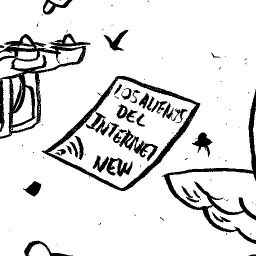 LOS ALIENS
DEL
INTERNET
NEW